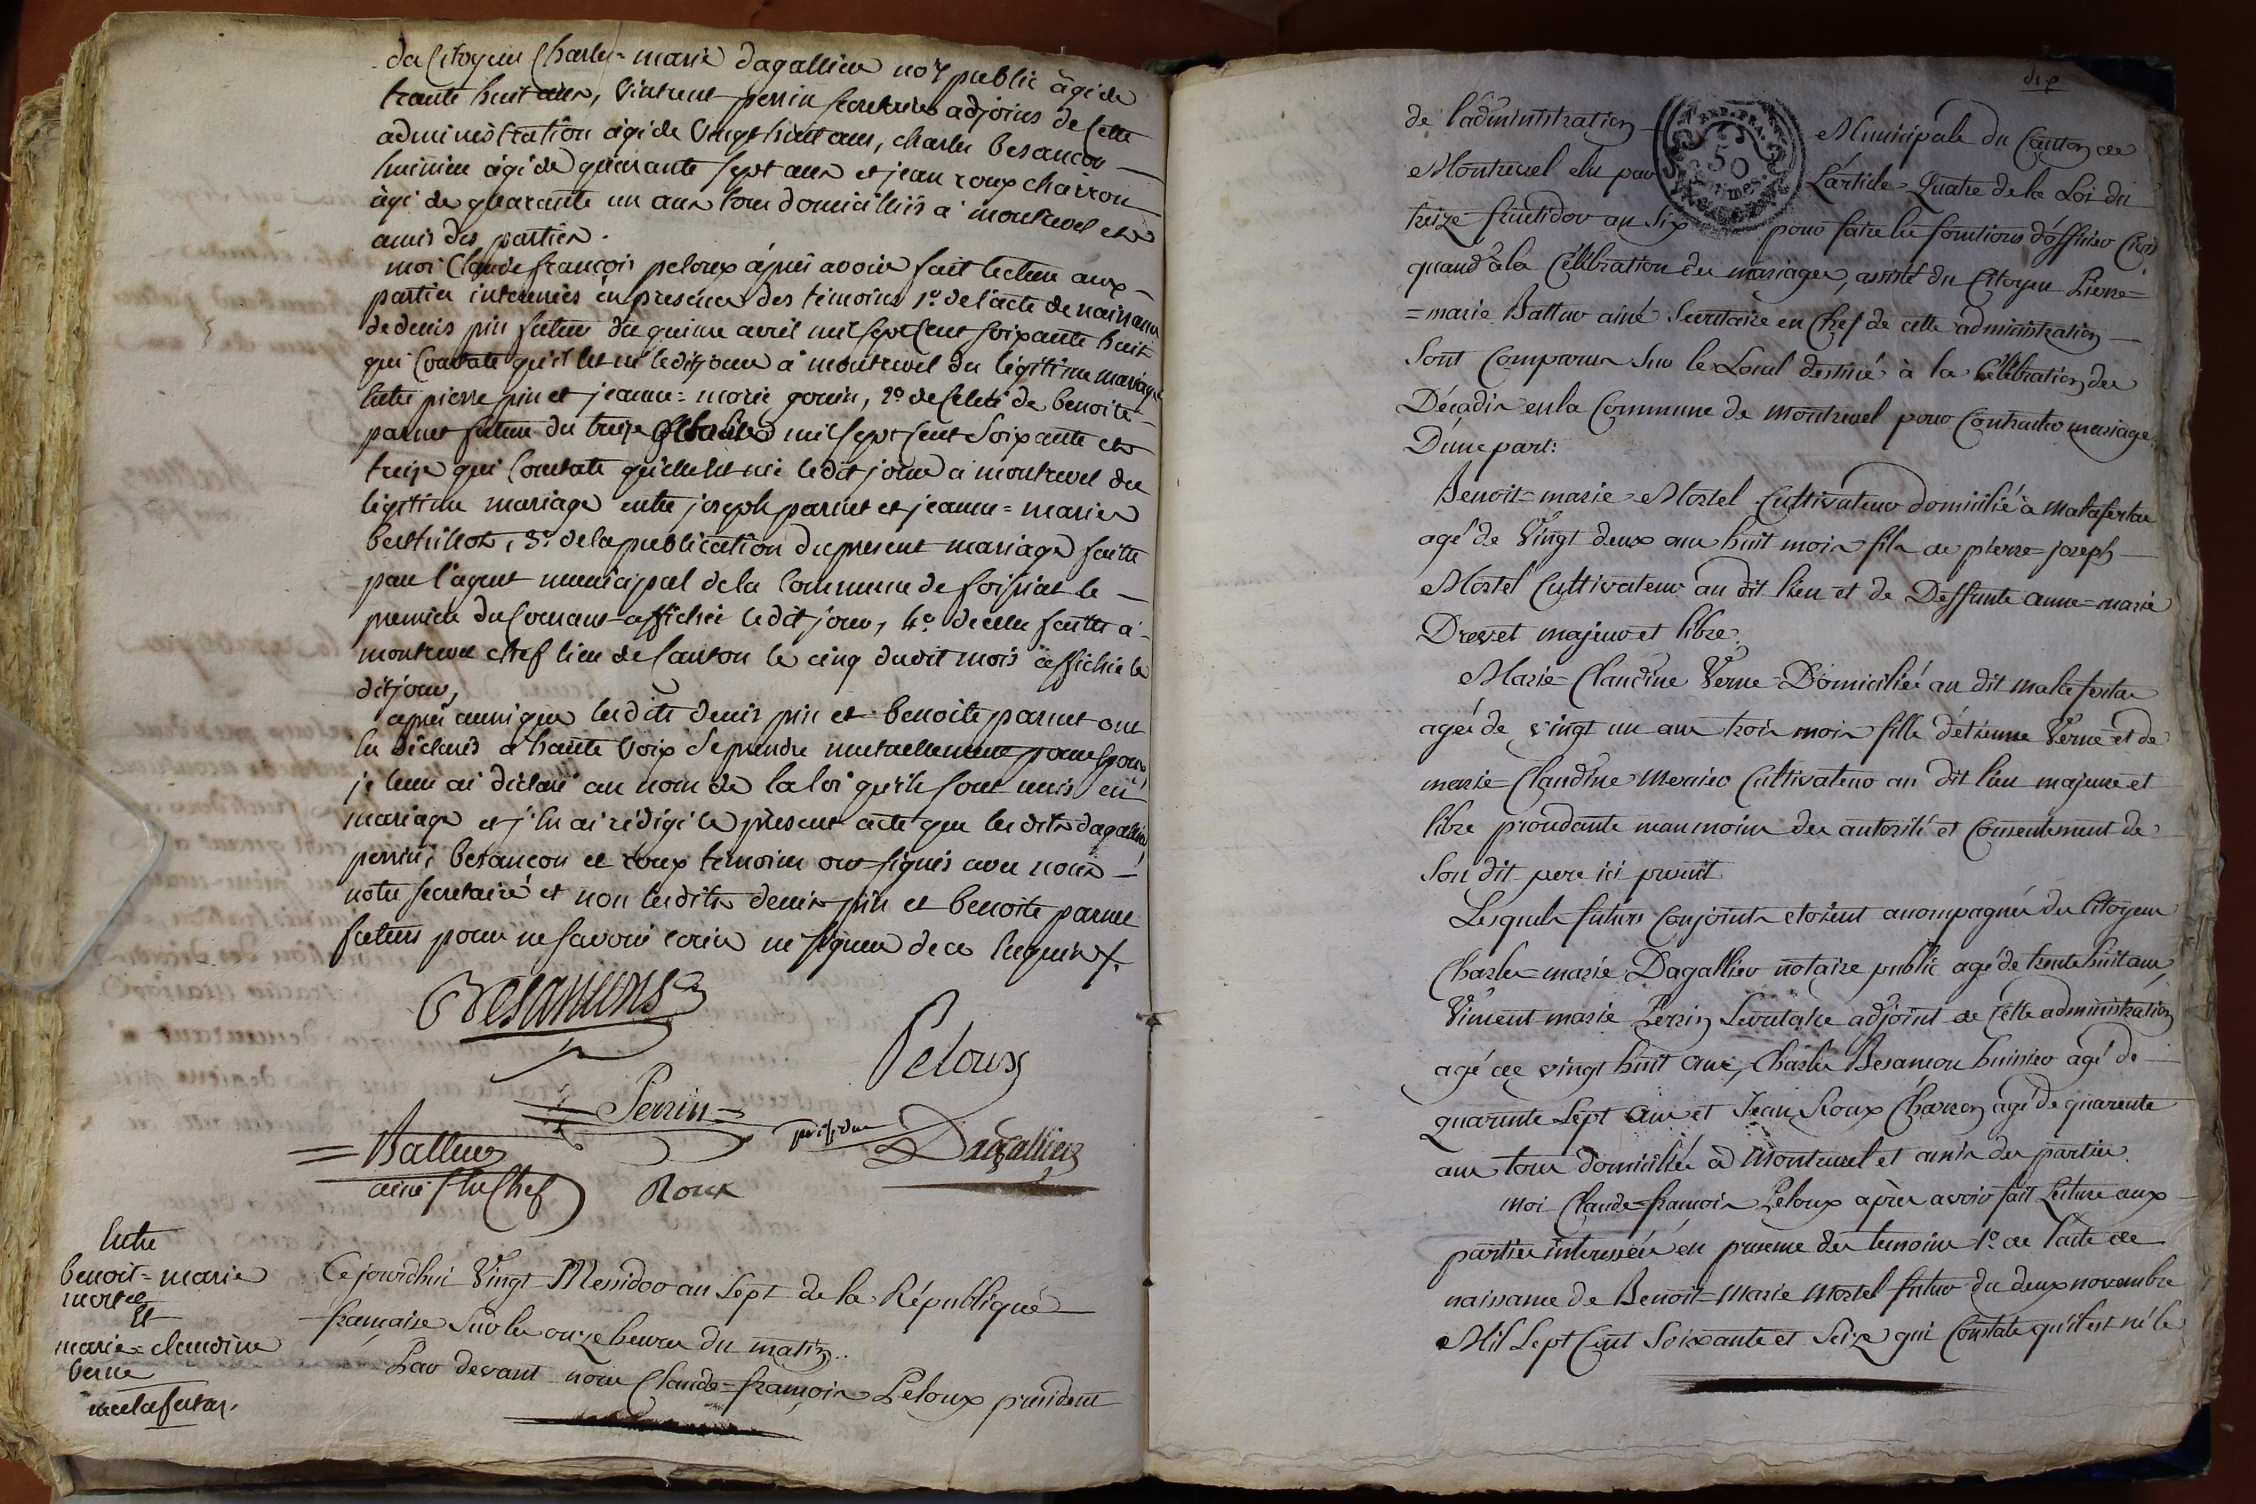 du Citoyen Charles=marie dagallier no.re public âgé de
trante huit ans, Vintcent perrin secretaire adjoins de Cette
administration âgé de vingt huit ans, charles besancon
huissier âgé de quarante sept ans et jean roux chairon
âgé de quarante un ans tous domiciliés a montrevel et
amis des parties.
moi Claude françois peloux âprés avoir fait lecture aux
parties interessées en presence des témoins 1.o de l'acte de naissance
de denis pin futur du quinze avril mil sept Cent soixante huit
qui Constate qu'il est né ledit jour a montrevel du légitime mariage
entre pierre pin et jeanne=marie gouin, 2.o de Celui de benoite
parnet future du treize mil sept Cent soixante et
treize qui Constate qu'elle est née le dit jour a montrevel du
légitime mariage entre joseph parnet et jeanne=marie
berthillot, 3.o de la publication du present mariage faitte
par l'agent municipal de la Commune de foissiat le
premier du Courant affichée le dit jour, 4.o de celle faitte a
montrevel chef lieu de Canton le cinq dudit mois affichée le
dit jour,
après aussi que lesdits denis pin et benoite parnet ont
eu déclaré a haute voix se prendre mutuellement pour Epoux
je leur ai déclaré au nom de la loi qu'ils sont unis en
mariage et j'en ai rédigé le présent acte que lesdits dagallier
perrin, besancon et roux temoins ont signés avec nous
notre secretaire et non lesdits denis pin et benoite parnet
futurs pour ne savoir ecrire ni signer de ce requis.
Besancons
Peloux
Perrin
président
Dagallier
Battur
ainé S.re en Chef
Roux
Entre
benoit=marie
mortel
Et
marie=claudine
verne
malafretaz.
Ce jourdhui Vingt Messidor an Sept de la République
francaise sur les onze heures du matin.
Par devant nous Claude=françois Peloux président
dix
de l'administration Municipale du Canton de
REP. FRA.
50
Montrevel elu par L'article Quatre de la Loi du
treize fructidor an Six pour faire les fonctions d'officier Civil
quand à la Célébration des mariages, assisté du Citoyen Pierre=
=marie Battur ainé Secretaire en Chef de cette administration
Sont Comparus Sur le Local destiné à la Célébration des
Décadis en la Commune de Montrevel pour Contracter mariage.
D'une part:
Benoit=marie Mortel Cultivateur domicilié à Malafretaz
agé de Vingt deux ans huit mois fils de pierre=joseph
Mortel Cultivateur au dit lieu et de Deffunte anne=marie
Drevet majeur et libre.
Marie=Claudine Verne Domiciliée au dit malafretaz
agée de vingt un ans trois mois fille d'étienne Verne et de
marie=Claudine Mercier Cultivateur au dit lieu majeure et
libre procédante néanmoins des autorité et Consentement de
Son dit pere ici présent
Lesquels futurs Conjoints etoient accompagnés du Citoyen
Charles=marie Dagallier notaire public agé de trente huit ans,
Vincent marie Perrin Secretaire adjoint de cette administration
agé de vingt huit ans, Charles Besancon huissier agé de
quarante Sept ans et Jean Roux Charron agé de quarente
ans tous domiciliés à Montrevel et amis des parties.
moi Claude=francois Peloux après avoir fait Lecture aux
parties interessées en presence des temoins 1.o de l'acte de
naissance de Benoit=Marie Mortel futur du deux novembre
Mil Sept Cent Soixante et Seize qui Constate qu'il est né le